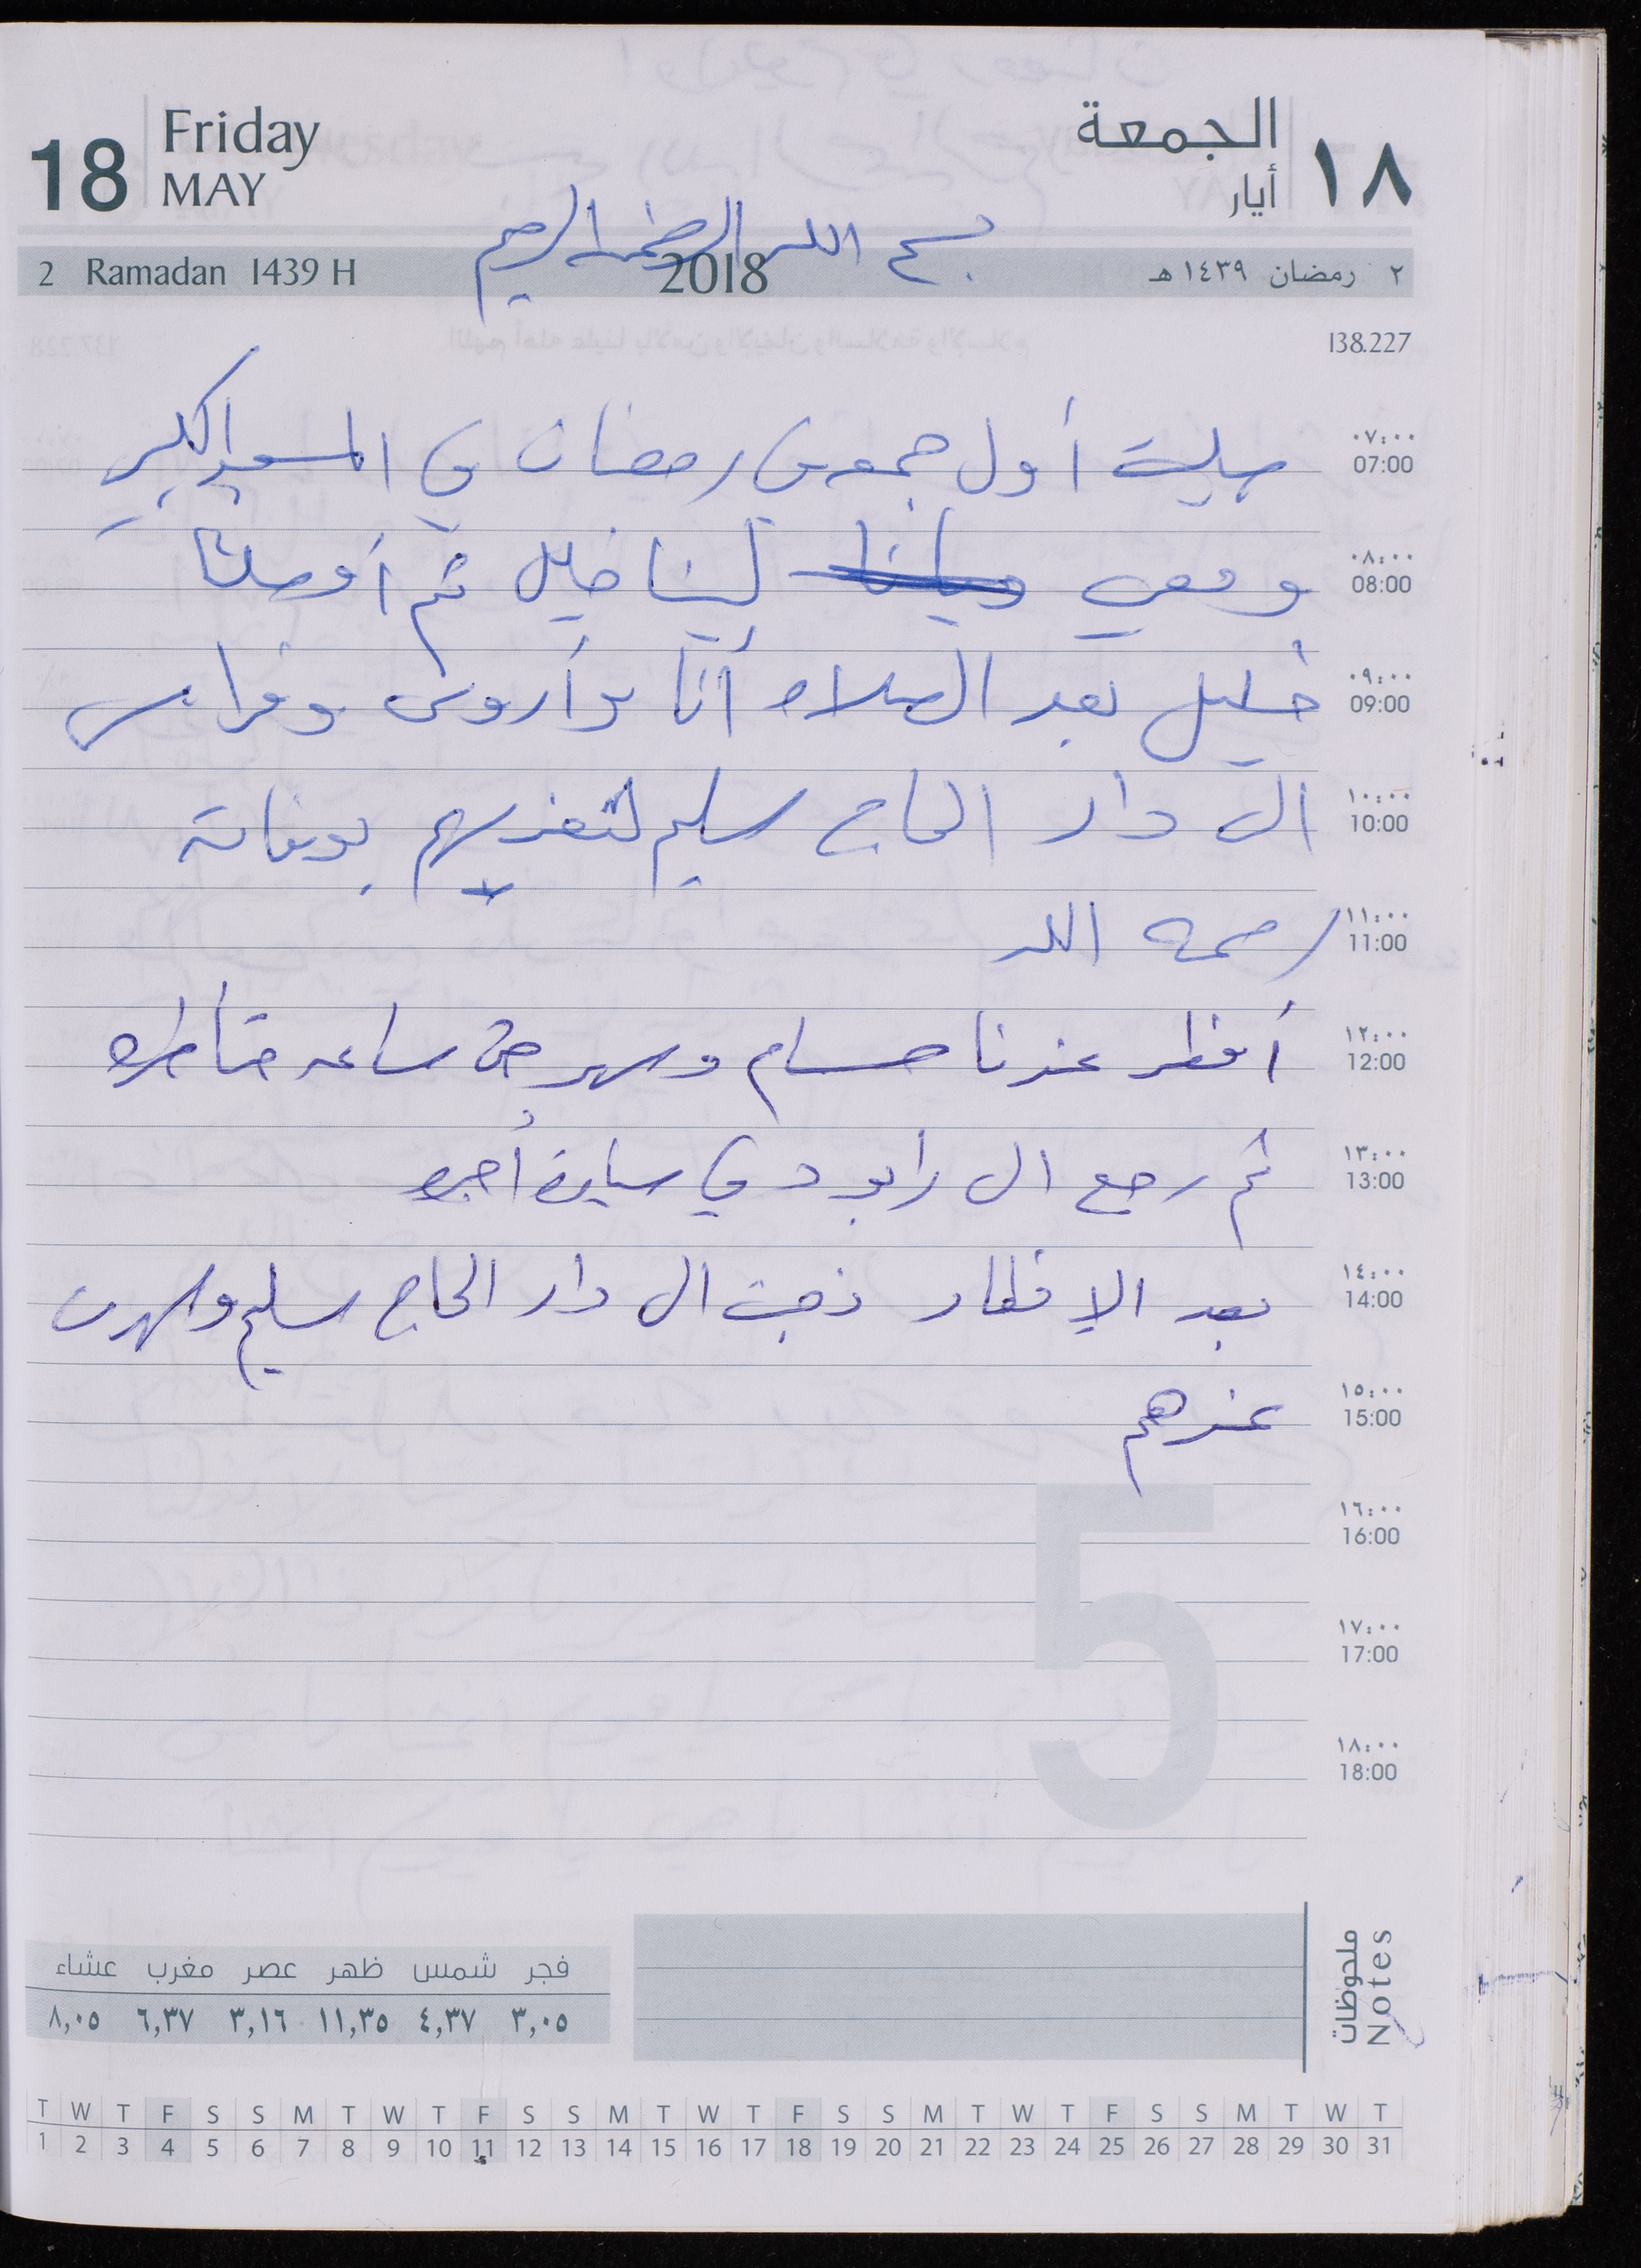 18 Friday MAY
الجمعة أيار ١٨
بسم الله الرحمن الرحيم
2 Ramadan 1439 H 2018 ٢ رمضان ١٤٣٩ هـ
138.227
٠٧:٠٠ 07:00 صليت أول جمعه في رمضان في المسجد الكبير
٠٨:٠٠ 08:00 ومعي خليل ثم أوصلنا
٠٩:٠٠ 09:00 خليل بعد الصلاه أنا وأروى وفراس
١٠:٠٠ 10:00 الى دار الحاج سليم لتعزيهم بوفاته
١١:٠٠ 11:00 رحمه الله
١٢:٠٠ 12:00 أفطر عندنا حسام وسهر حتى ساعه متأخره
١٣:٠٠ 13:00 ثم رجع الى دبي سياره أجره
١٤:٠٠ 14:00 بعد الإفطار ذهبت الى دار الحاج سليم وسهرت
١٥:٠٠ 15:00 عندهم
١٦:٠٠ 16:00
١٧:٠٠ 17:00
١٨:٠٠ 18:00
5
ملحوظات Notes
فجر شمس ظهر عصر مغرب عشاء
٣,٠٥ ٤,٣٧ ١١,٣٥ ٣,١٦ ٦,٣٧ ٨,٠٥
T W T F S S M T W T F S S M T W T F S S M T W T F S S M T W T
1 2 3 4 5 6 7 8 9 10 11 12 13 14 15 16 17 18 19 20 21 22 23 24 25 26 27 28 29 30 31